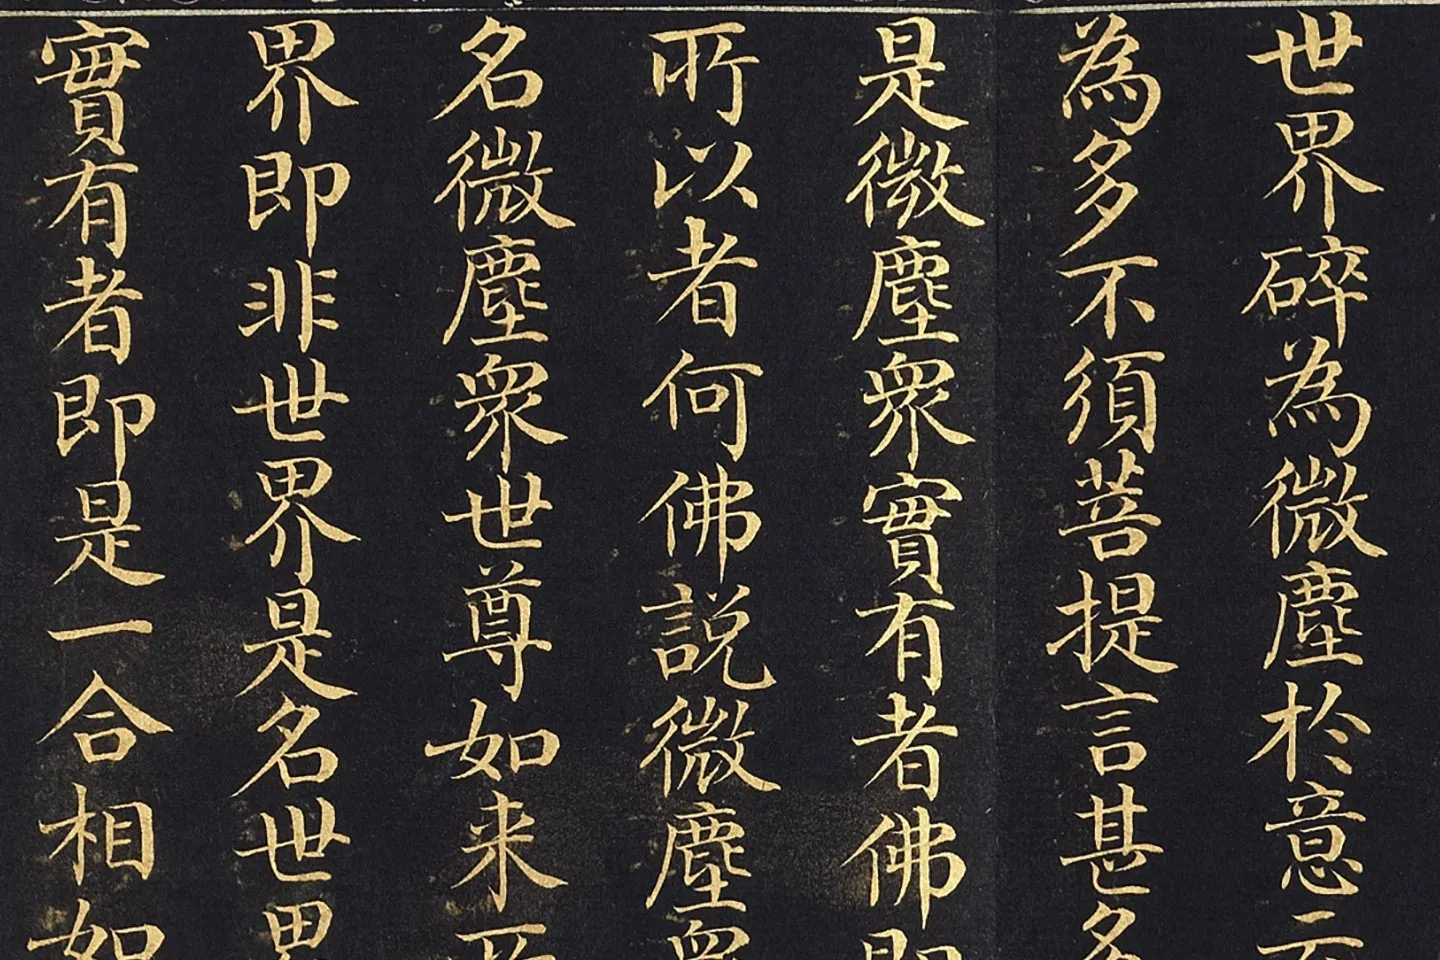 世界碎為微塵於意云
為多不須菩提言甚多
是微塵眾實有者佛即
所以者何佛說微塵眾
名微塵眾世尊如来所
界即非世界是名世界
實有者即是一合相如